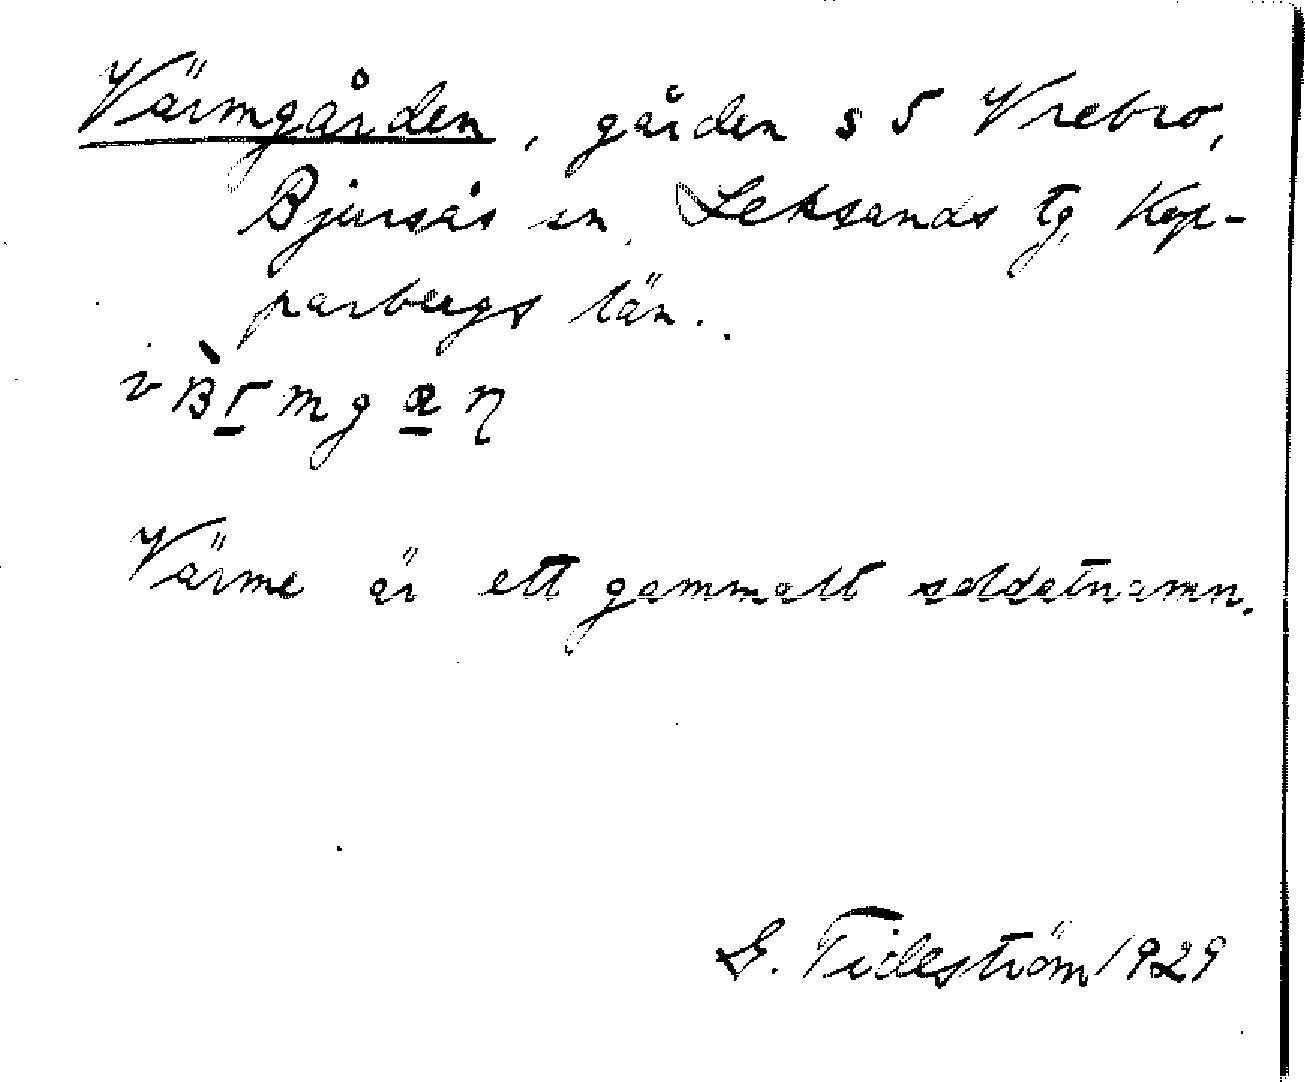 Värmgården, gården s 5 Vrebro,
Bjursås sn, Leksands tg, Kop-
parbergs län.
Värme är ett gammalt soldatnamn.
G. Tideström 1929